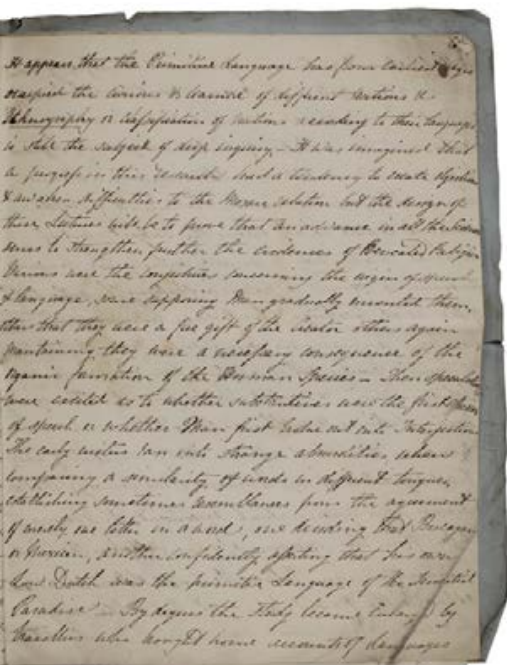 It appears that the Primitive Language has from earliest ages
occupied the curious & learned of different nations &
Ethnography or classification of nations according to their languages
is still the subject of deep inquiry - It was imagined that
a progress in this research had a tendency to create objection
& awaken difficulties to the Mosaic relation but the design of
these Lectures will be to prove that an advance in all the
seems to strengthen further the evidences of Revealed Religion
Various were the conjectures concerning the origin of speech
& language, some supposing Man gradually invented them,
others that they were a free gift of the Creator others again
maintaining they were a necessary consequence of the
organic formation of the Human Species - Then speculations
were excited as to whether substantives were the first
of speech or whether Man first broke out into Interjections
The early writers ran into strange absurdities when
comparing a similarity of words in different tongues,
establishing sometimes resemblances from the agreement
of merely one letter in a word, one deciding that
or, another confidently asserting that his own
Low Dutch was the primitive Language of the Terrestrial
Paradise - By degrees the Study became enlarged by
travellers who brought home accounts of languages